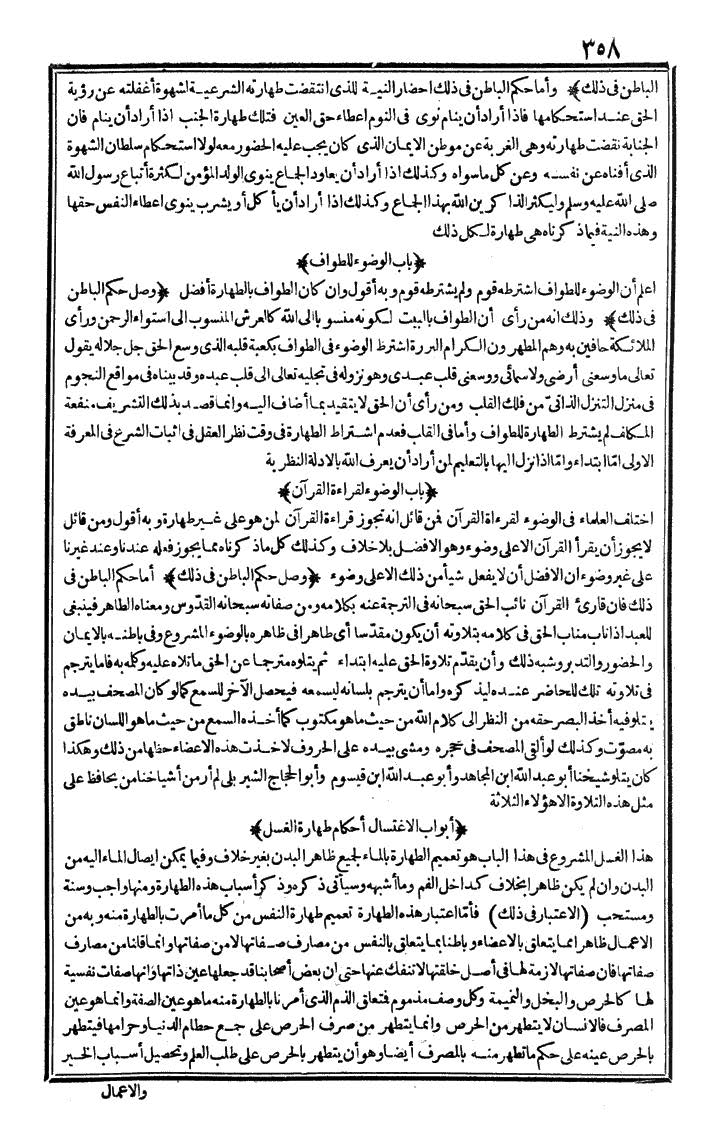 ٣٥٨
الباطن فى ذلك﴾ وأما حكم الباطن فى ذلك احضار النية للذى انتقضت طهارته الشرعية لشهوة أغفلته عن رؤية
الحق عند استحكامها فاذا أراد أن ينام نوى فى النوم اعطاء حق العين فتلك طهارة الجنب اذا أراد أن ينام فان
الجنابة نقضت طهارته وهى الغربة عن موطن الايمان الذى كان يجب عليه الحضور معه لولا استحكام سلطان الشهوة
الذى أفناه عن نفسه وعن كل ماسواه وكذلك اذا أراد أن يعاود الجماع ينوى الولد المؤمن لكثرة أتباع رسول الله
صلى الله عليه وسلم وليكثر الذاكرين الله بهذا الجماع وكذلك اذا أراد أن يأكل أو يشرب ينوى اعطاء النفس حقها
وهذه النية فيما ذكرناه هى طهارة لكل ذلك
﴿باب الوضوء للطواف﴾
اعلم أن الوضوء للطواف اشترطه قوم ولم يشترطه قوم وبه أقول وان كان الطواف بالطهارة أفضل ﴿وصل حكم الباطن
فى ذلك﴾ وذلك انه من رأى أن الطواف بالبيت لكونه منسوبا الى الله كالعرش المنسوب الى استواء الرحمن ورأى
الملائكة حافين به وهم المطهرون الكرام البررة اشترط الوضوء فى الطواف بكعبة قلبه الذى وسع الحق جل جلاله يقول
تعالى ماوسعنى أرضى ولا سمائى ووسعنى قلب عبدى وهو نزوله فى تجليه تعالى الى قلب عبده وقد بيناه فى مواقع النجوم
فى منزل التنزل الذاتىّ من فلك القلب ومن رأى أن الحق لا يتقيد بما أضاف اليه وانما قصد بذلك التشريف منفعة
المكلف لم يشترط الطهارة للطواف وأما فى القلب فعدم اشتراط الطهارة فى وقت نظر العقل فى اثبات الشرع فى المعرفة
الاولى امّا ابتداء وامّا اذا نزل اليها بالتعليم لمن أراد أن يعرف الله بالادلة النظرية
﴿باب الوضوء لقراءة القرآن﴾
اختلف العلماء فى الوضوء لقراءة القرآن فمن قائل انه تجوز قراءة القرآن لمن هو على غير طهارة وبه أقول ومن قائل
لا يجوز أن يقرأ القرآن الاعلى وضوء وهو الافضل بلاخلاف وكذلك كل ماذكرناه مما يجوز فعله عندنا وعند غيرنا
على غير وضوء ان الافضل أن لا يفعل شيأ من ذلك الاعلى وضوء ﴿وصل حكم الباطن فى ذلك﴾ أما حكم الباطن فى
ذلك فان قارئ القرآن نائب الحق سبحانه فى الترجمة عنه بكلامه ومن صفاته سبحانه القدّوس ومعناه الطاهر فينبغى
للعبد اذا ناب مناب الحق فى كلامه بتلاوته أن يكون مقدّسا أى طاهرا فى ظاهره بالوضوء المشروع وفى باطنه بالايمان
والحضور والتدبر وشبه ذلك وأن يقدّم تلاوة الحق عليه ابتداء ثم يتلوه مترجما عن الحق ماتلاه عليه وكله به فاما يترجم
فى تلاوته تلك للحاضر عنده ليذكره واما أن يترجم بلسانه ليسمعه فيحصل الآخر للسمع كما لو كان المصحف بيده
يتلو فيه أخذ البصر حقه من النظر الى كلام الله من حيث ماهو مكتوب كما أخذه السمع من حيث ماهو اللسان ناطق
به مصوّت وكذلك لو ألقى المصحف فى حجره ومشى بيده على الحروف لاخذت هذه الاعضاء حظها من ذلك وهكذا
كان يتلو شيخنا أبو عبد الله ابن المجاهد وأبو عبد الله ابن قيسوم وأبو الحجاج الشبربلى لم أر من أشياخنا من يحافظ على
مثل هذه التلاوة الا هؤلاء الثلاثة
﴿أبواب الاغتسال أحكام طهارة الغسل﴾
هذا الغسل المشروع فى هذا الباب هو تعميم الطهارة بالماء لجميع ظاهر البدن بغير خلاف وفيما يمكن ايصال الماء اليه من
البدن وان لم يكن ظاهرا بخلاف كداخل الفم وما أشبهه وسيأتى ذكره وذكر أسباب هذه الطهارة ومنها واجب وسنة
ومستحب (الاعتبار فى ذلك) فأما اعتبار هذه الطهارة تعميم طهارة النفس من كل ما أمرت بالطهارة منه وبه من
الاعمال ظاهرا مما يتعلق بالاعضاء وباطنا بما يتعلق بالنفس من مصارف صفاتها لا من صفاتها وانما قلنا من مصارف
صفاتها فان صفاتها لازمة لها فى أصل خلقتها لا تنفك عنها حتى ان بعض أصحابنا قد جعلها عين ذاتها وانها صفات نفسية
لها كالحرص والبخل والنميمة وكل وصف مذموم فتعلق الذم الذى أمرنا بالطهارة منه ماهو عين الصفة وانما هو عين
المصرف فالانسان لا يتطهر من الحرص وانما يتطهر من صرف الحرص على جمع حطام الدنيا وحرامها فيتطهر
بالحرص عينه على حكم ماتطهر منه بالمصرف أيضا وهو أن يتطهر بالحرص على طلب العلم وتحصيل أسباب الخير
والاعمال